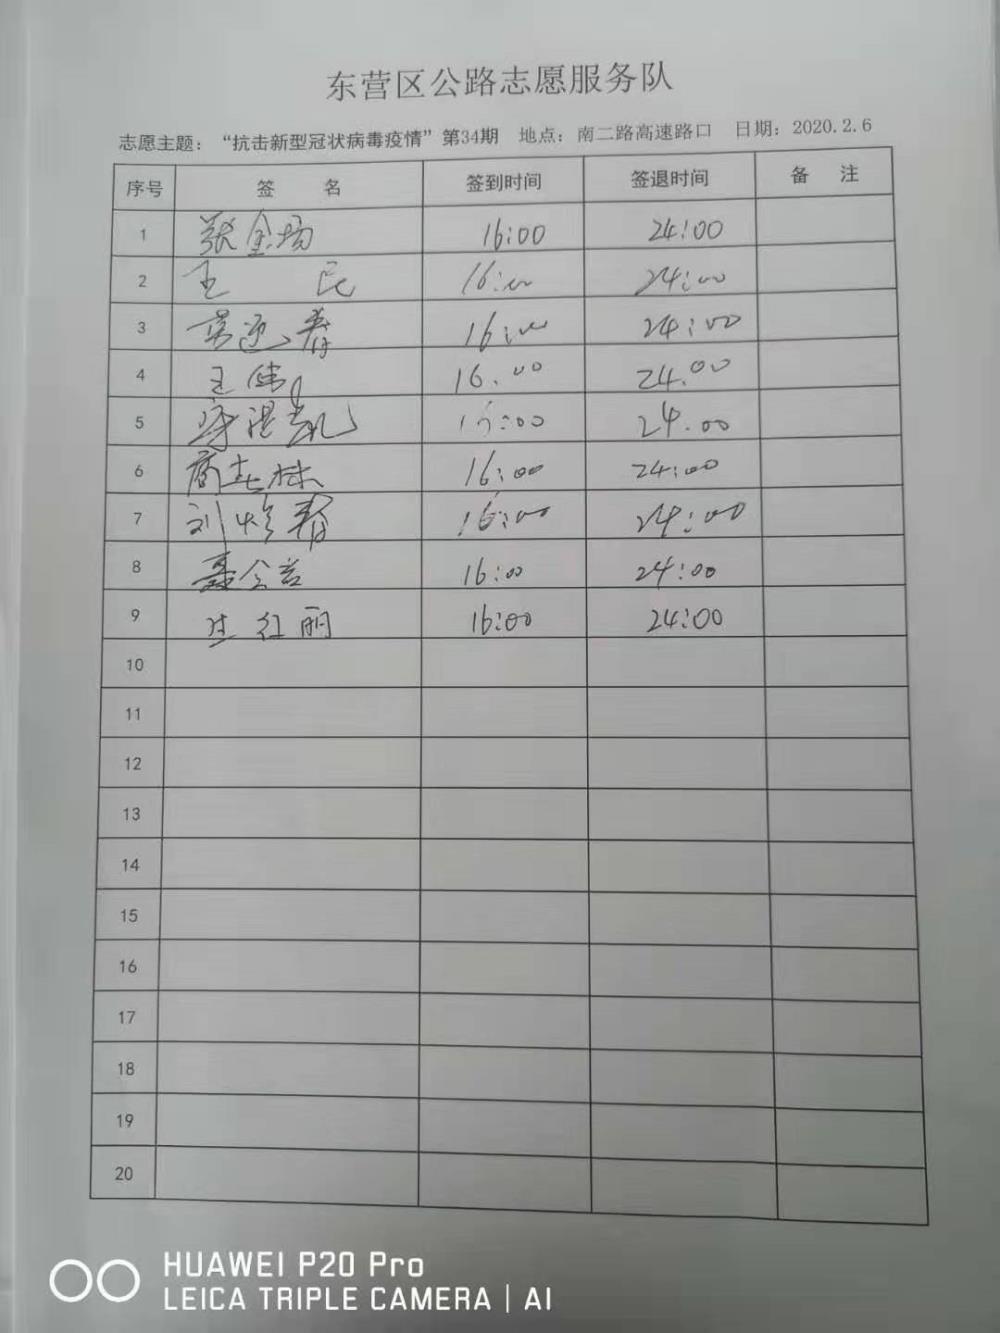 东营区公路志愿服务队
志愿主题：“抗击新型冠状病毒疫情”第34期 地点：南二路高速路口 日期：2020.2.6
序号 签 名 签到时间 签退时间 备 注
1 张金场 16:00 24:00
2 王 民 16:00 24:00
3 春 16:00 24:00
4 王伟 16.00 24.00
5 凯 :00 24.00
6 商 林 16:00 24:00
7 刘 春 16:00 24:00
8 聂 16:00 24:00
9 红丽 16:00 24:00
10
11
12
13
14
15
16
17
18
19
20
HUAWEI P20 Pro
LEICA TRIPLE CAMERA | AI